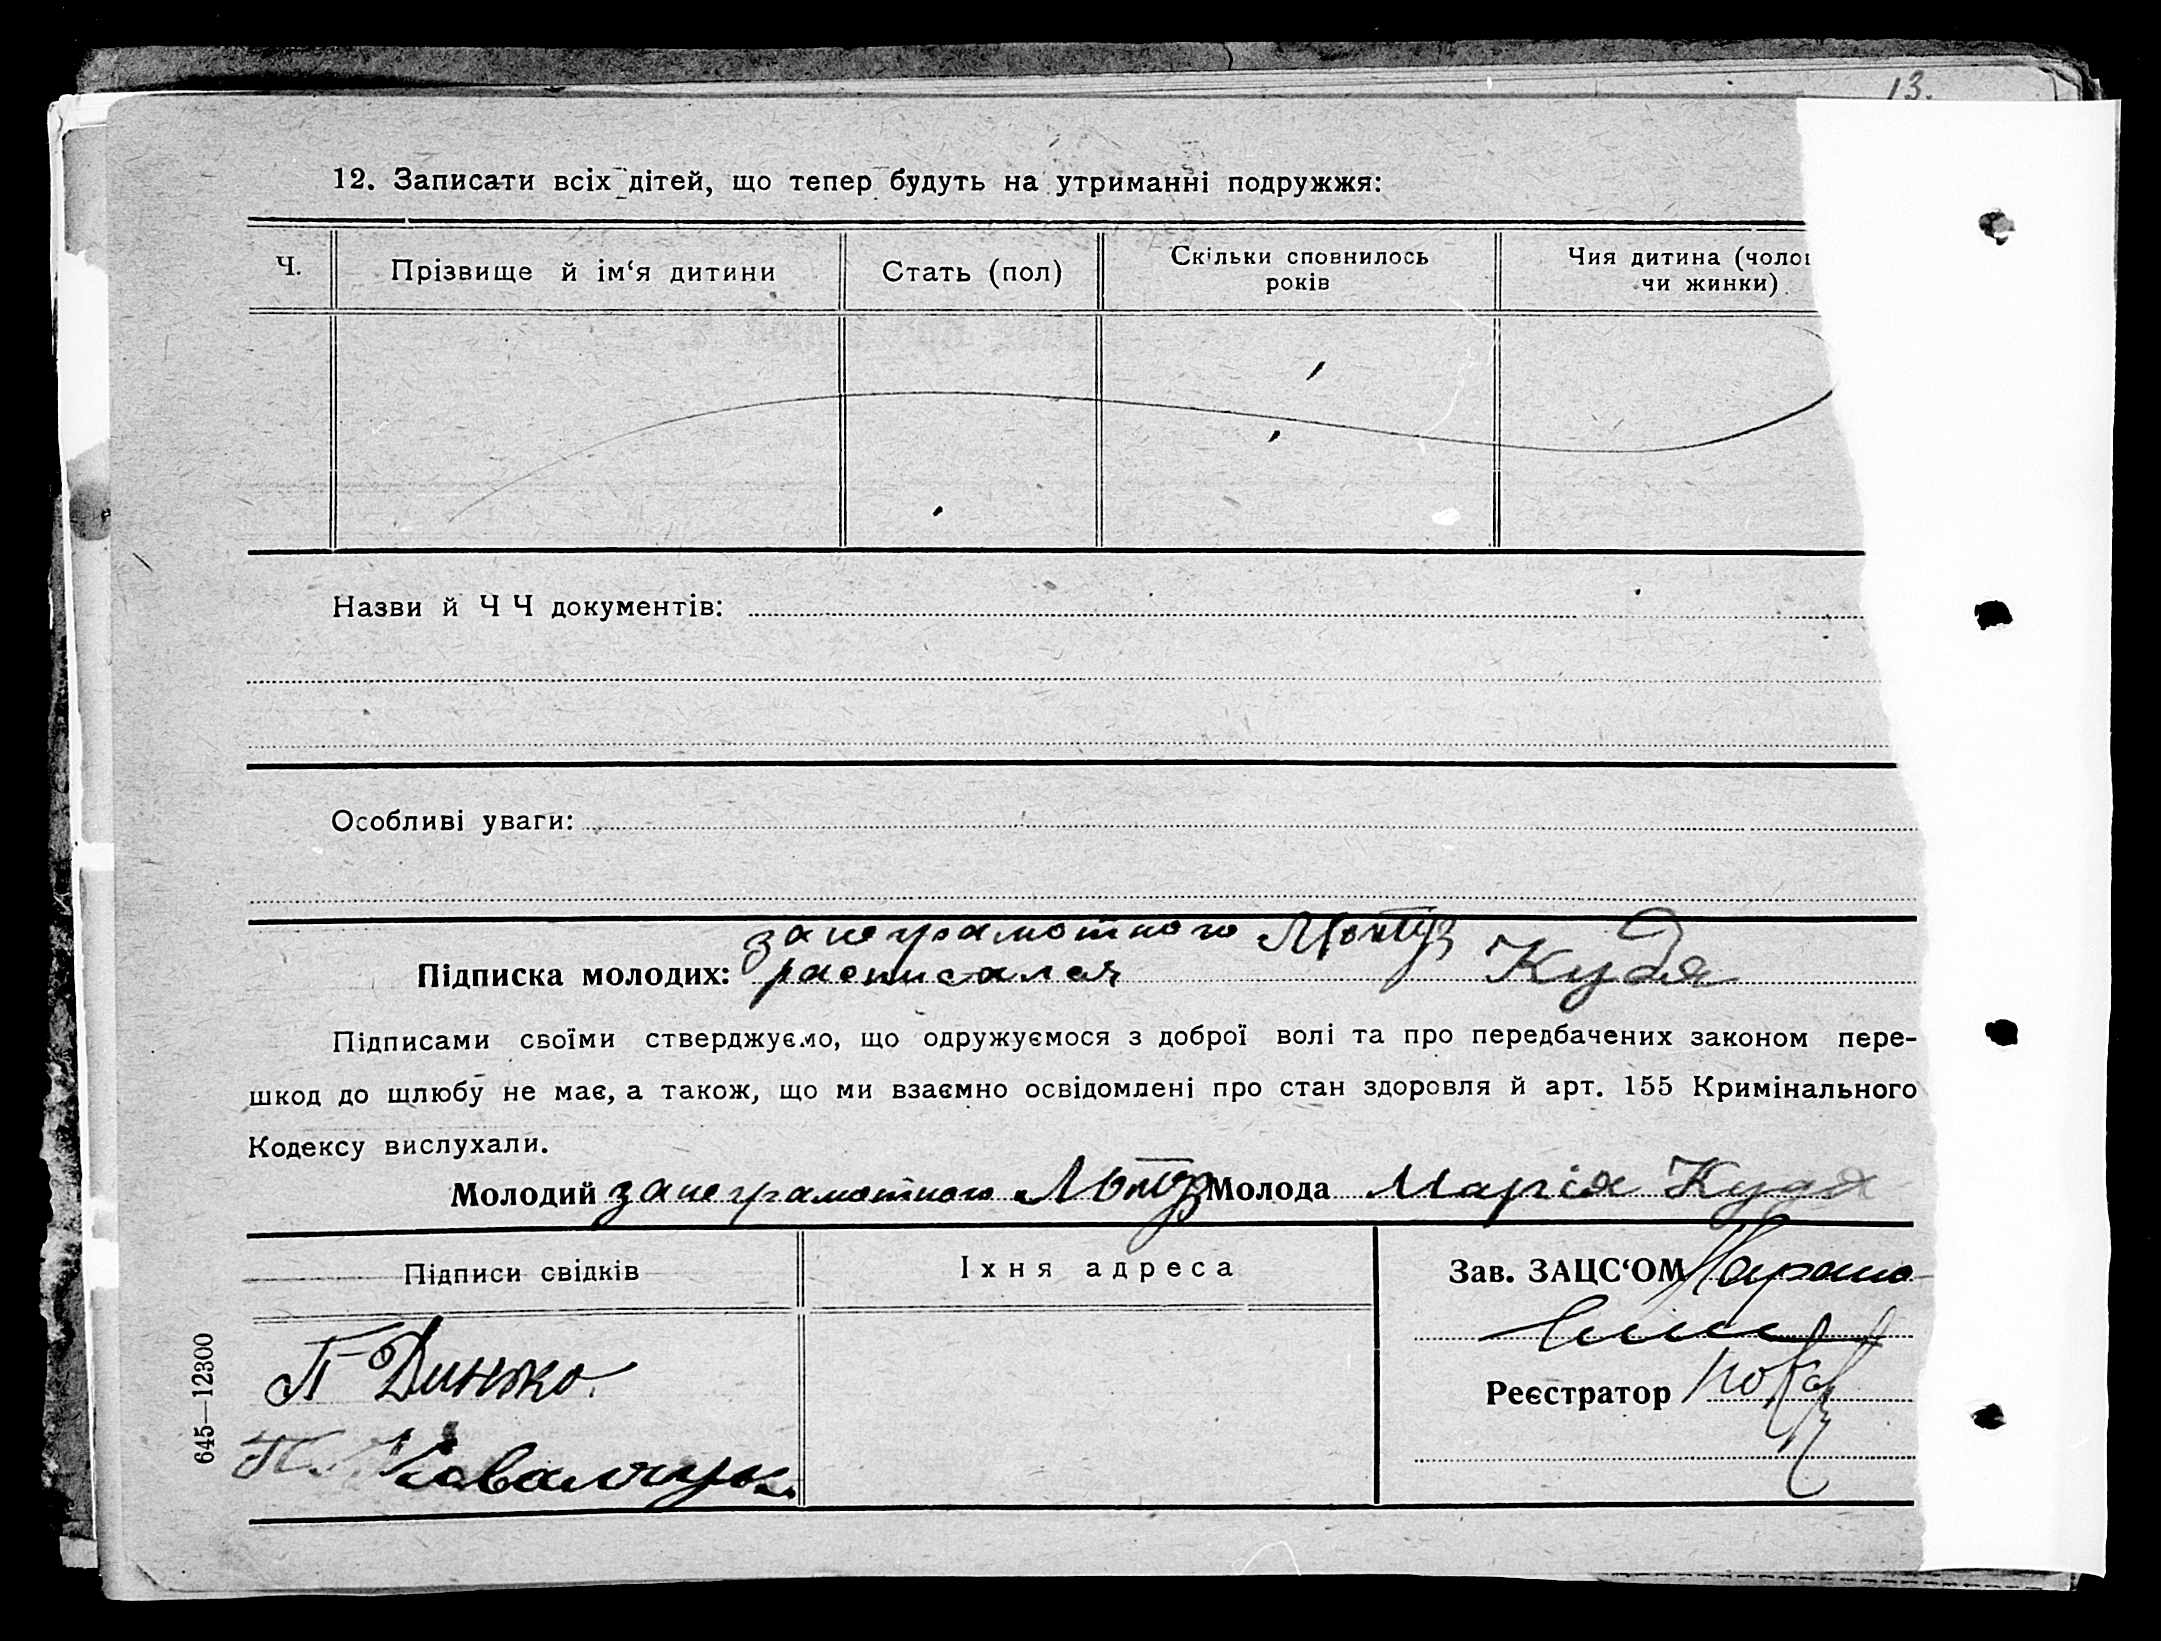 13.
12. Записати всіх дітей, що тепер будуть на утриманні подружжя:
Ч.
Прізвище й ім‘я дитини
Стать (пол)
Скільки сповнилось
років
Чия дитина (чолов
чи жинки)
Назви й Ч Ч документів:
Особливі уваги:
занеграмотного
Підписка молодих: расписался Кудя
Підписами своїми стверджуємо, що одружуємося з доброї волі та про передбачених законом пере-
шкод до шлюбу не має, а також, що ми взаємно освідомлені про стан здоровля й арт. 155 Кримінального
Кодексу вислухали.
Молодий занеграмотного Молода Марія Кудя
Підписи свідків
Їхня адреса
Зав. ЗАЦС‘ОМ
П Динжо.
Реєстратор
П. Ковальчук.
645—12300